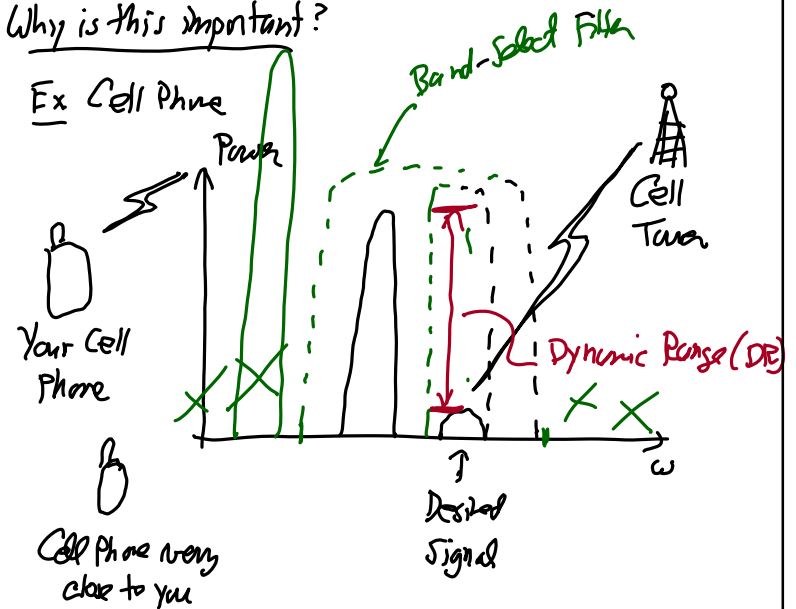 Why is this important?
Band-Select Filter
Ex Cell Phone
Power
Cell
Tower
Your Cell
Phone
Dynamic Range (DR)
ω
Desired
Signal
Cell Phone very
close to you